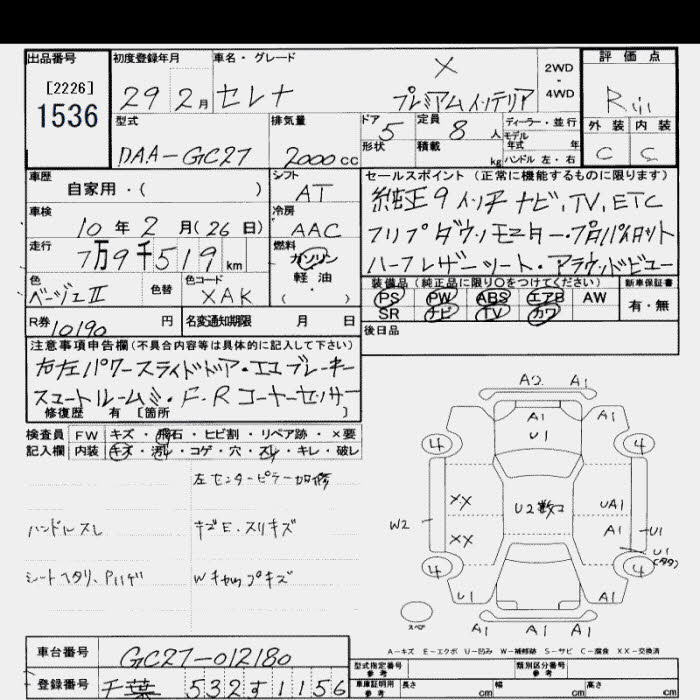 出品番号 初度登録年月 車名・グレード 評価点
[2226] 1536
29年2月 セレナ X プレミアムインテリア 2WD・4WD R
型式 排気量 ドア 5 定員 8人 ディーラー・並行 外装 内装
DAA-GC27 2000cc 形状 積載 kg モデル年式 年 ハンドル 左・右 C C
車歴 シフト セールスポイント(正常に機能するものに限ります)
自家用・( ) AT 純正9インチナビ、TV、ETC
車検 冷房 フリップダウンモニター・プロパイロット
10年2月(26日) AAC ハーフレザーシート・アラウンドビュー
走行 燃料
7万9千519km ガソリン 軽油 ( )
色 色替 色コード 装備品(純正品に限り○をつけてください) 新車保証書
ベージュII XAK PS PW ABS エアB AW 有・無
SR ナビ TV カワ
R券 10190円 名変通知期限 月 日 後日品
注意事項申告欄(不具合内容等は具体的に記入して下さい)
右左パワースライドドア・エコ ブレーキ
スマートルームミ・F.Rコーナーセンサー
修復歴 有 [箇所 ]
検査員 FW キズ・飛石・ヒビ割・リペア跡・×要
記入欄 内装 キズ・汚レ・コゲ・穴・スレ・キレ・破レ
左センターピラー加修
ハンドルスレ キズE・スリキズ
シートヘタリ、P
Wキャップキズ
A2 A1
A1 A1
U1
4 4
XX U2数コ UA1
W2 XX A1 U1
U1
4 4
U1 A1 A1
A1 A1
スペア
A-キズ E-エクボ U-凹み W-補修跡 S-サビ C-腐食 XX-交換済
車台番号 GC27-012180
型式指定番号 参考 類別区分番号 参考
登録番号 千葉 532す1156
車庫証明用 参考 長さ cm 幅 cm 高さ cm